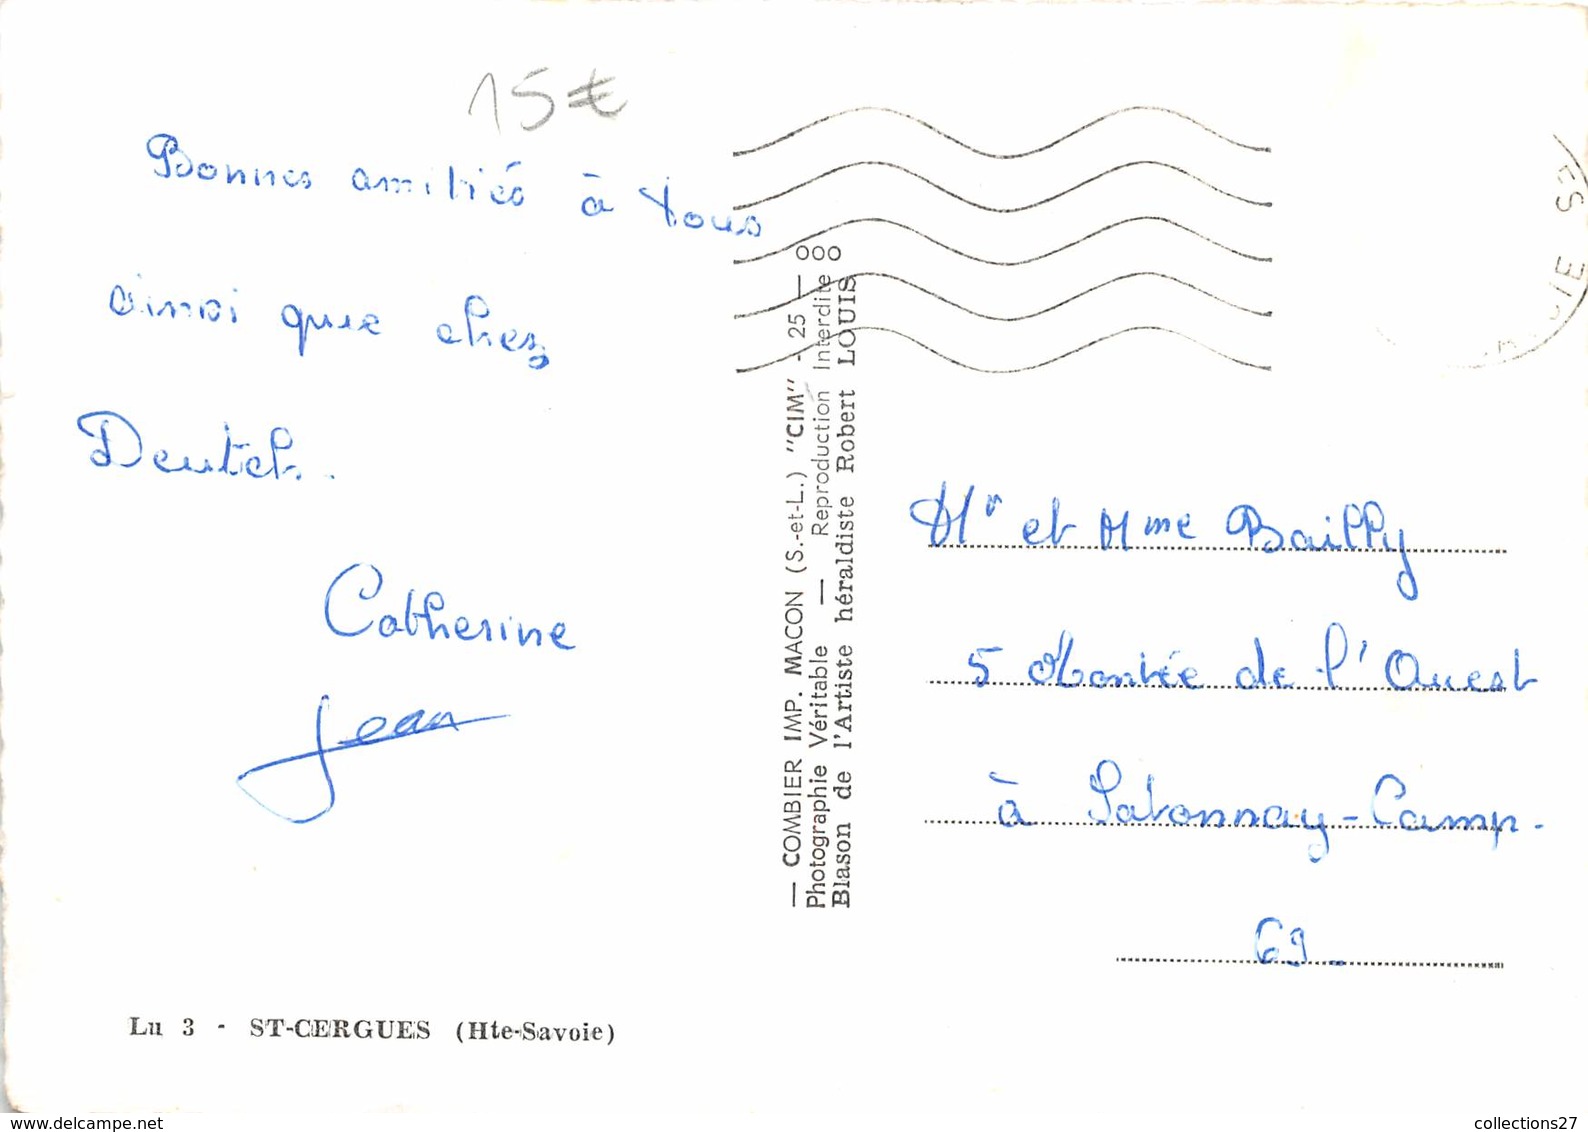 15€
Bonnes amitiés à tous
ainsi que chez
Deutch.
Catherine
Jean
— COMBIER IMP. MACON (S.-et-L.) "CIM" - 25 — 000
Photographie Véritable — Reproduction Interdite
Blason de l'Artiste héraldiste Robert LOUIS
Mr et Mme Bailly
5 Montée de l'Ouest
à Satonnay-Camp.
69_
Lu 3 - ST-CERGUES (Hte-Savoie)
collections27